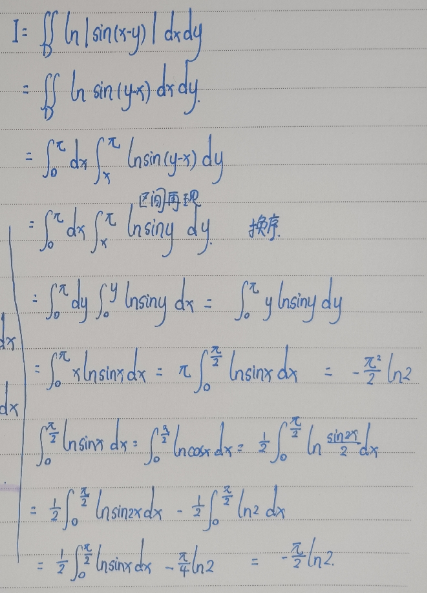 I = ∬_D ln|sin(x-y)| dxdy
= ∬_D ln sin(y-x) dxdy.
= ∫_0^π dx ∫_x^π lnsin(y-x) dy
区间再现
= ∫_0^π dx ∫_x^π lnsiny dy. 换序.
= ∫_0^π dy ∫_0^y lnsiny dx = ∫_0^π y lnsiny dy
dx
= ∫_0^π x lnsinx dx = π ∫_0^{π/2} lnsinx dx = -π²/2 ln2
dx
∫_0^{π/2} lnsinx dx = ∫_0^{π/2} lncosx dx = 1/2 ∫_0^{π/2} ln sin2x/2 dx
= 1/2 ∫_0^{π/2} lnsin2x dx - 1/2 ∫_0^{π/2} ln2 dx
= 1/2 ∫_0^{π/2} lnsinx dx - π/4 ln2 = -π/2 ln2.